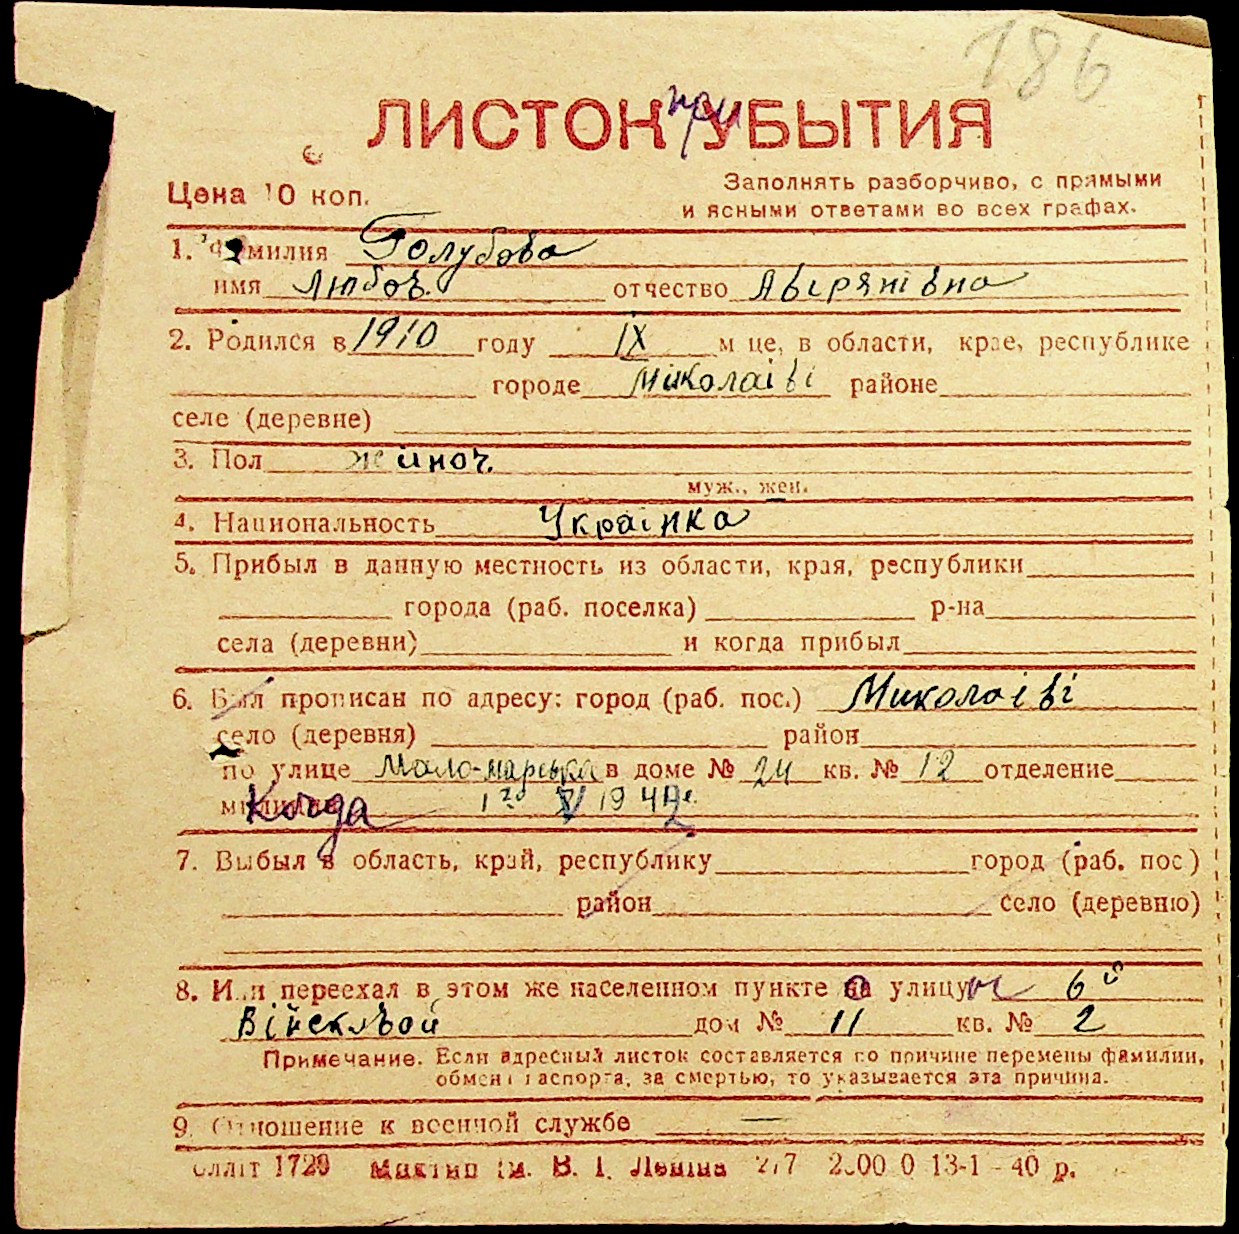 186
ЛИСТОК при УБЫТИЯ
Цена 10 коп.
Заполнять разборчиво, с прямыми
и ясными ответами во всех графах.
1. Фамилия Голубова
имя Любов. отчество Авірянівна
2. Родился в 1910 году IX м-це, в области, крае, республике
городе Міколаіві районе
селе (деревне)
3. Пол жіноч.
муж., жен.
4. Национальность Украінка
5. Прибыл в данную местность из области, края, республики
города (раб. поселка) р-на
села (деревни) и когда прибыл
6. Был прописан по адресу: город (раб. пос.) Миколаіві
село (деревня) район
по улице Мало-марська в доме № 24 кв. № 12 отделение
милиции Когда 1го V 1942
7. Выбыл в область, край, республику город (раб. пос)
район село (деревню)
8. Или переехал в этом же населенном пункте на улицу 6й
Війсклвой дом № 11 кв. № 2
Примечание. Если адресный листок составляется по причине перемены фамилии,
обмена паспорта, за смертью, то указывается эта причина.
9. Отношение к военной службе —
1720 им. В. І. Леніна 13-1-40 р.